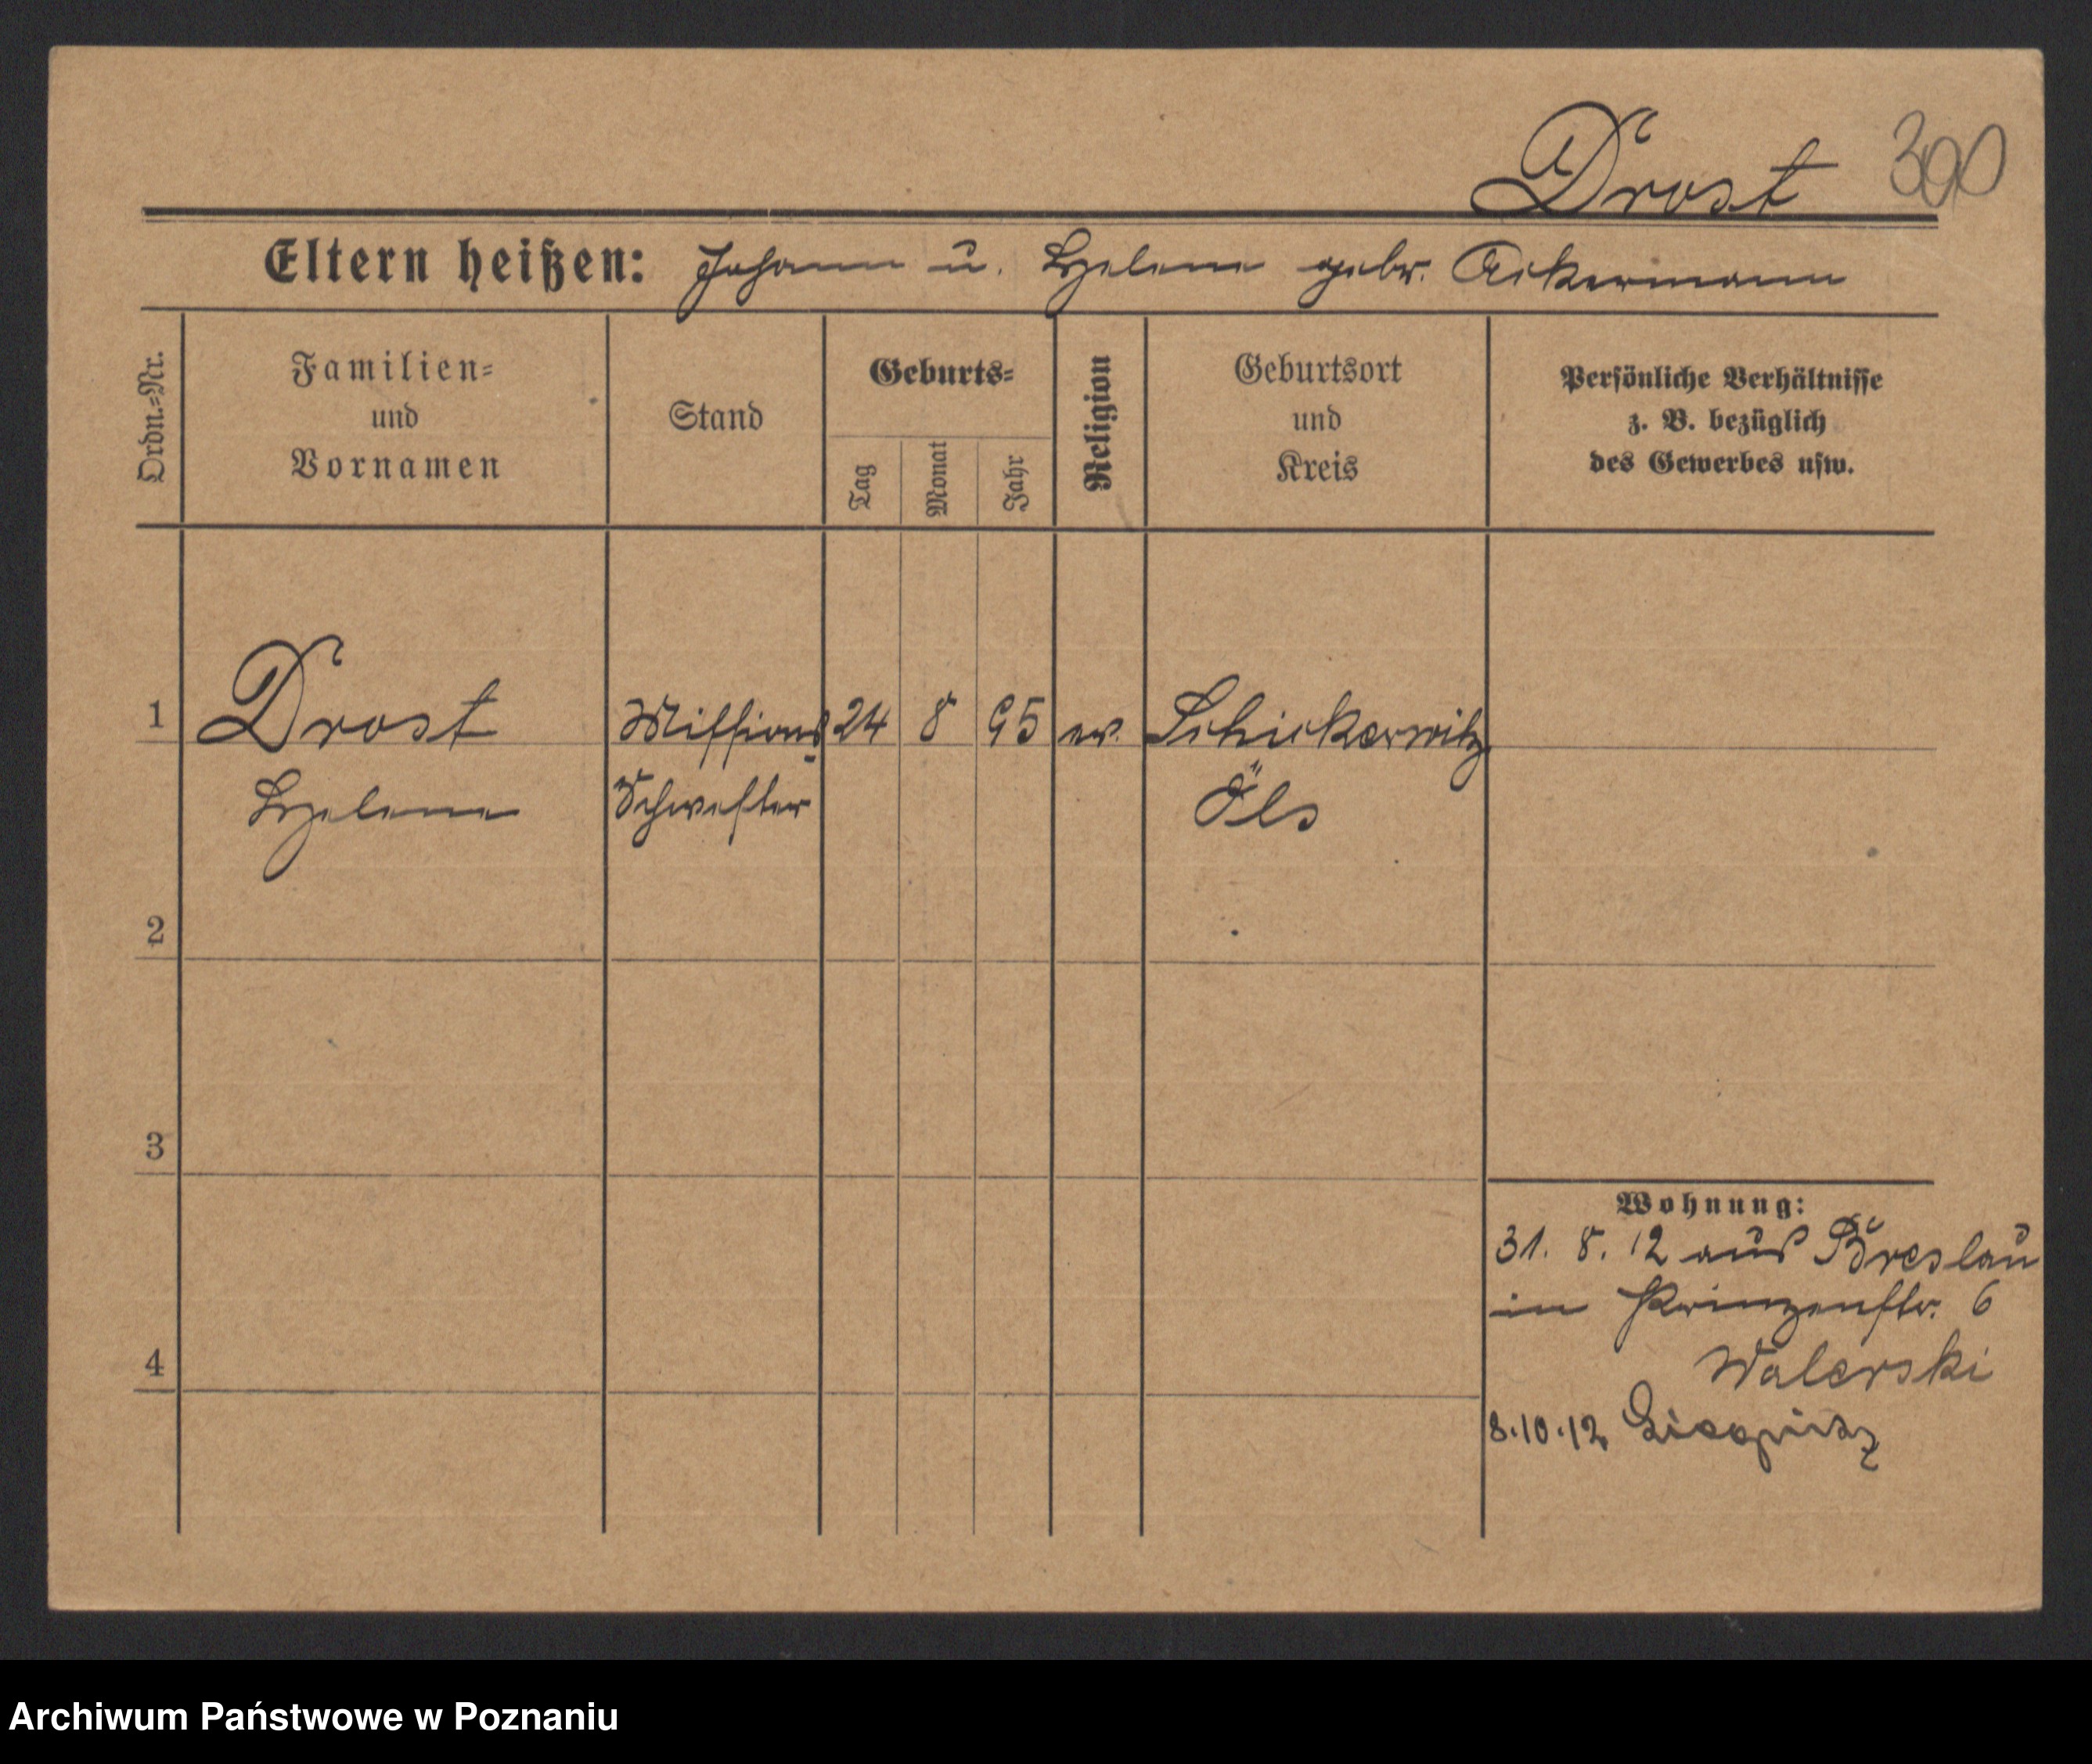 Drost 390
Eltern heißen: Johann u. Helene gebr. Ackermann
Ordn.=Nr.
Familien=
und
Vornamen
Stand
Geburts=
Tag
Monat
Jahr
Religion
Geburtsort
und
Kreis
Persönliche Verhältnisse
z. B. bezüglich
des Gewerbes usw.
1 Drost Missions 24 8 95 ev. Schickerwitz
Helene Schwester Öls
2
3
Wohnung:
31. 8. 12 aus Breslau
in Prinzenstr. 6
Walerski
4
8.10.12
Archiwum Państwowe w Poznaniu